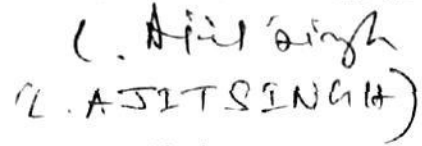 (. Ajit Singh
(L. AJIT SINGH)